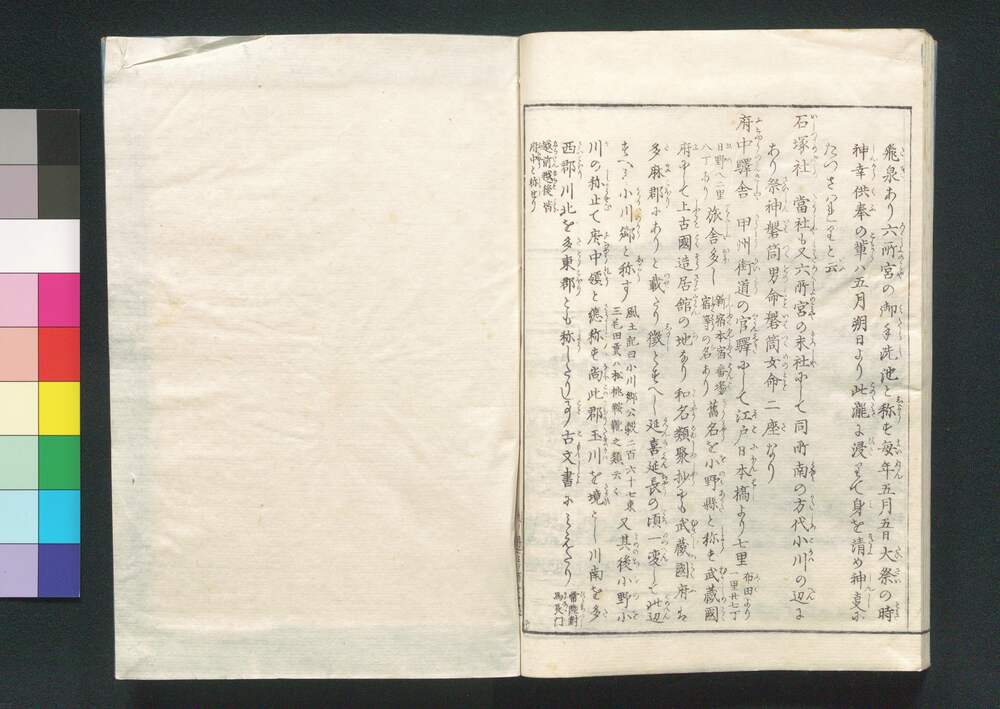 飛泉あり六所宮の御手洗池と称す毎年五月五日大祭の時
神幸供奉の輩ハ五月朔日より此瀧に浸りて身を清め神裏に
たつさハれりと云
石塚社 當社も又六所宮の末社にして同所南の方代小川の辺に
あり祭神磐筒男命磐筒女命二座なり
府中驛舎 甲州街道の官驛にして江戸日本橋より七里
布田より
一里廿七丁
日野ハ二里
八丁あり
旅舎多し
新宿本宿番場
宿等の名あり
舊名を小野縣と称す武蔵國
府にして上古國造居館の地なり和名類聚抄にも武蔵國府ハ
多麻郡にありと載たり徴とすへし延喜延長の頃一変して此辺
をハ小川郷と称す
風土記曰小川郷公穀二百六十七束
三毛田貢ハ松桃鞍鞭之類云々
又其後小野小
川の称止て府中領と總称す尚此郡玉川を境とし川南を多
西郡川北を多東郡とも称したりし事古文書にミえたり
當院對
馬長門
越前越後皆
府中と称せり